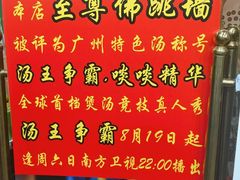 本店至尊佛跳墙
被评为广州特色汤称号
汤王争霸·啖啖精华
全球首档煲汤竞技真人秀
汤王争霸8月19日起
逢周六日南方卫视22:00播出